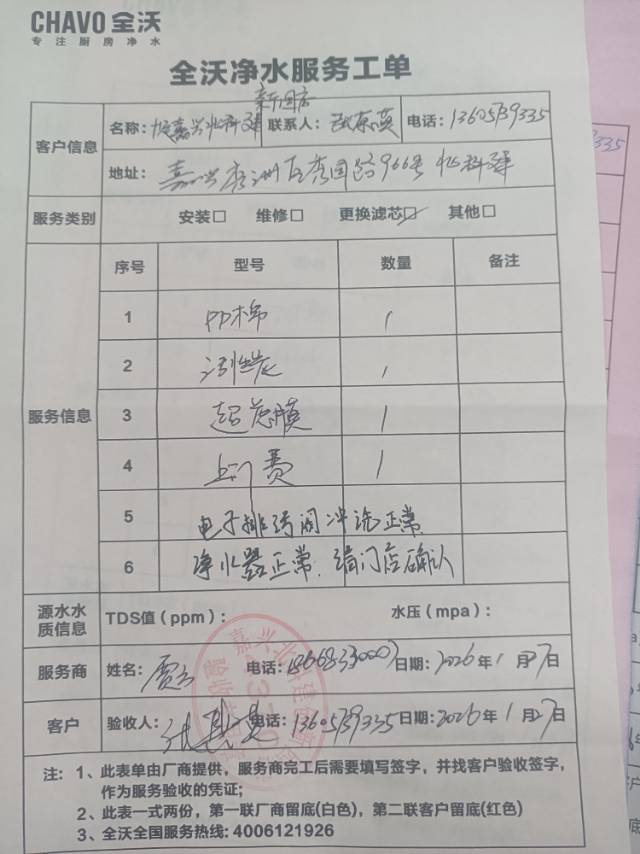 CHAVO全沃
专注厨房净水
全沃净水服务工单
新国店
客户信息 名称: 嘉兴北科建 联系人: 张 电话: 13605739335
地址: 嘉兴秀洲区秀园路966号北科建
服务类别 安装□ 维修□ 更换滤芯☑ 其他□
服务信息 序号 型号 数量 备注
1 PP棉 1
2 活性炭 1
3 超滤膜 1
4 上门费 1
5 电子排污阀冲洗正常
6 净水器正常.请门店确认
源水水质信息 TDS值(ppm): 水压(mpa):
服务商 姓名: 电话: 日期: 2026年1月27日
客户 验收人: 张 电话: 13605739335 日期: 2026年1月27日
注: 1、此表单由厂商提供，服务商完工后需要填写签字，并找客户验收签字，
作为服务验收的凭证;
2、此表一式两份，第一联厂商留底(白色)，第二联客户留底(红色)
3、全沃全国服务热线: 4006121926